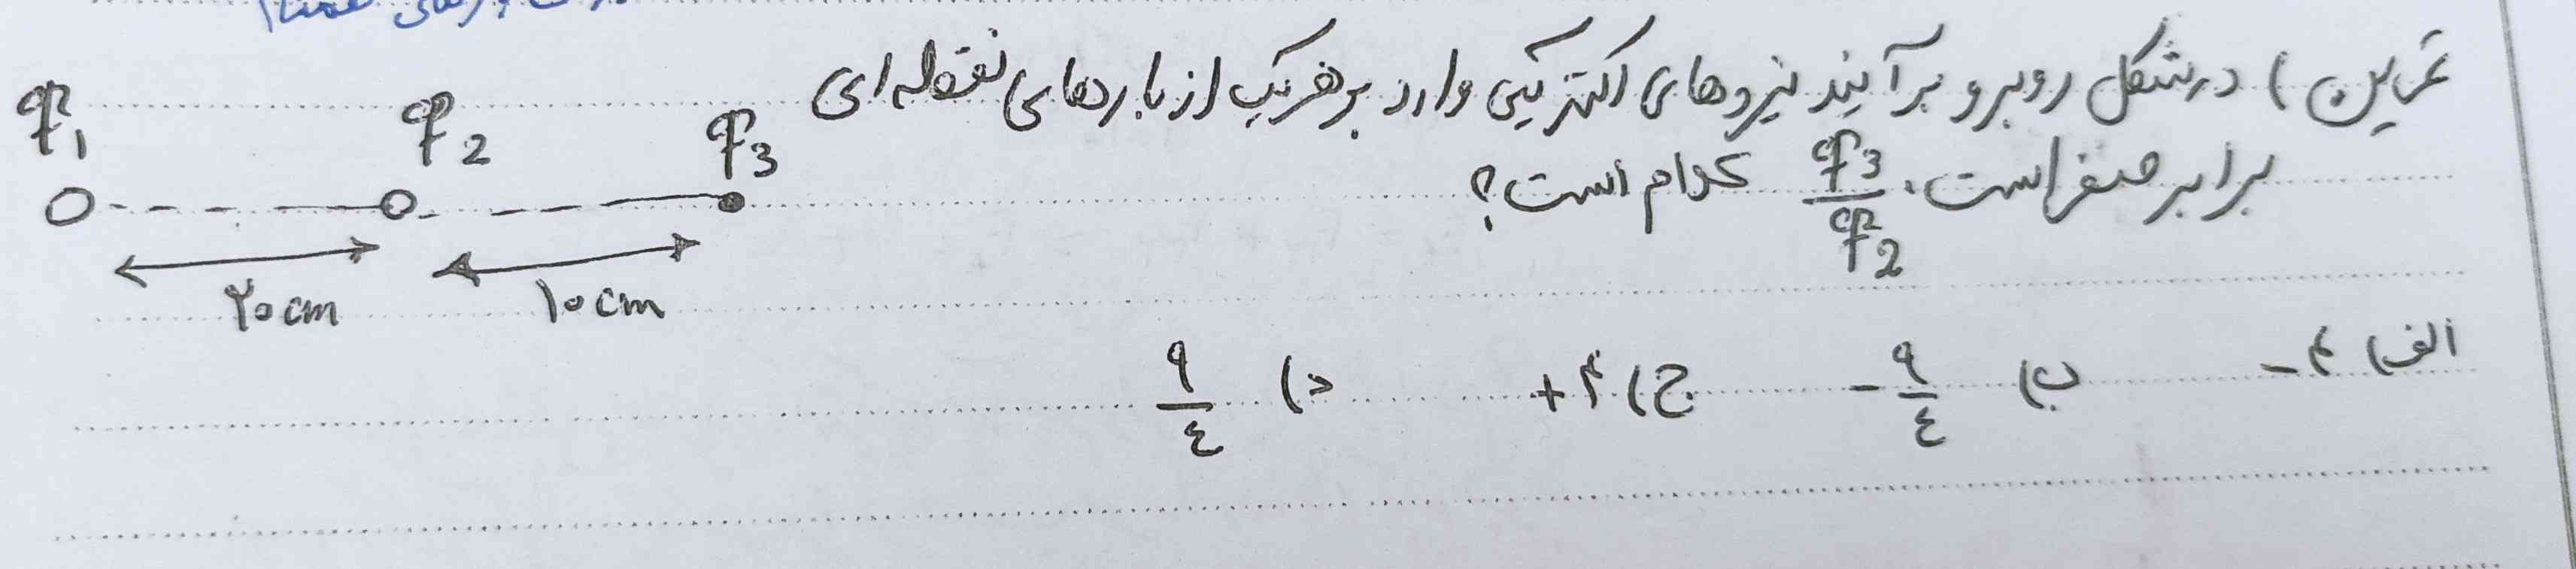 تمرین) در شکل روبرو برآیند نیروهای الکتریکی وارد بر هر یک از بارهای نقطه‌ای
برابر صفر است. q3/q2 کدام است؟
q1 q2 q3
۲۰ cm ۱۰ cm
الف) ۴- ب) -۹/٤ ج) ۴+ د) ۹/٤